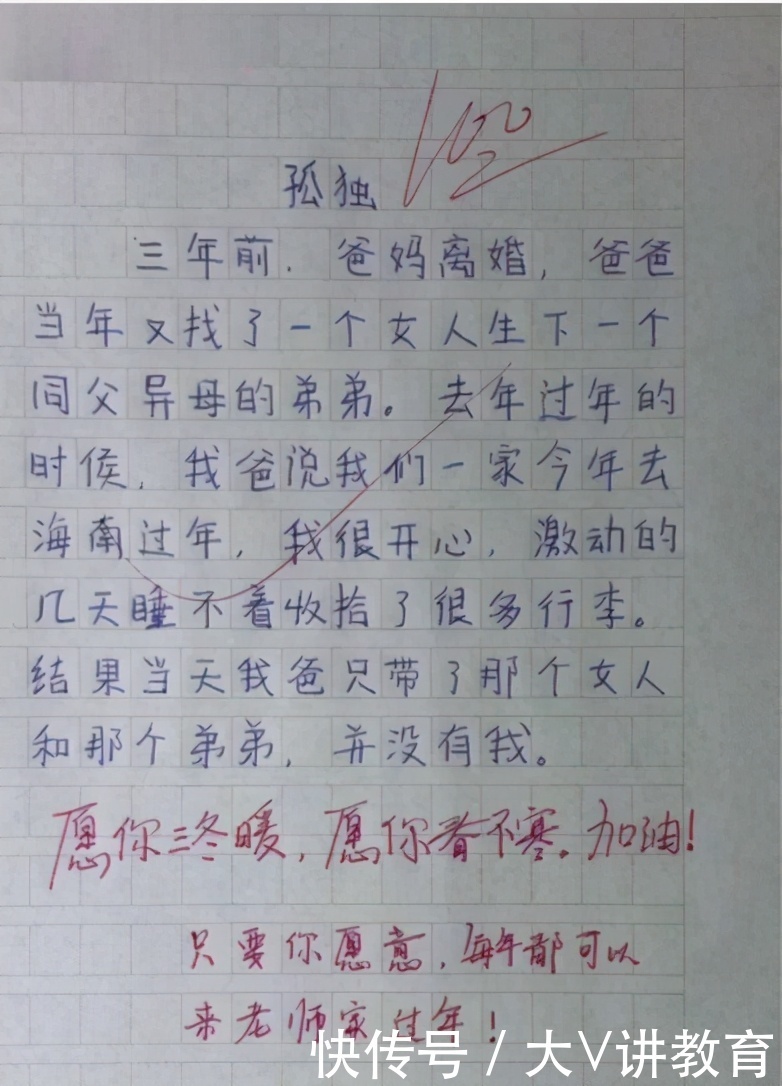 100
孤独
三年前.爸妈离婚,爸爸
当年又找了一个女人生下一个
同父异母的弟弟。去年过年的
时候,我爸说我们一家今年去
海南过年,我很开心,激动的
几天睡不着收拾了很多行李。
结果当天我爸只带了那个女人
和那个弟弟,并没有我。
愿你三冬暖,愿你春不寒。加油!
只要你愿意,每年都可以
来老师家过年!
快传号/大V讲教育